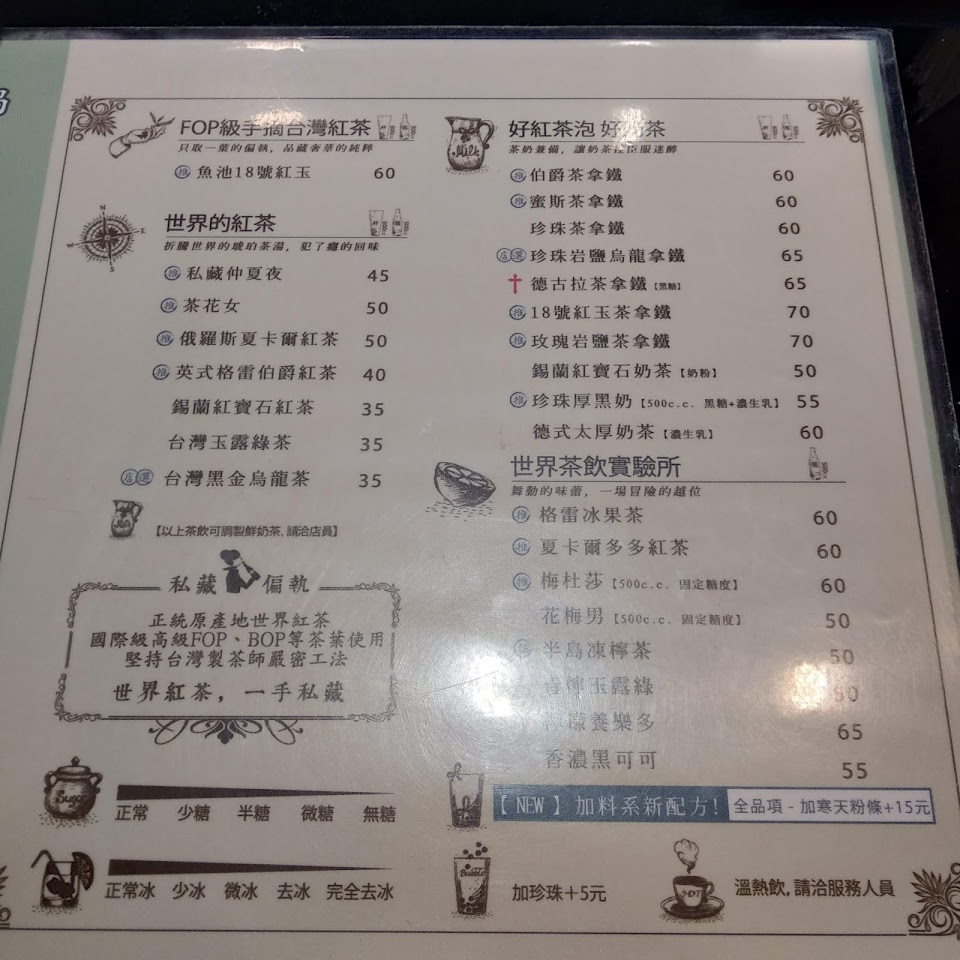 FOP級手摘台灣紅茶
只取一葉的偏執，品藏奢華的純粹
推 魚池18號紅玉 60
世界的紅茶
折騰世界的琥珀茶湯，犯了癮的回味
推 私藏仲夏夜 45
推 茶花女 50
推 俄羅斯夏卡爾紅茶 50
推 英式格雷伯爵紅茶 40
錫蘭紅寶石紅茶 35
台灣玉露綠茶 35
店選 台灣黑金烏龍茶 35
【以上茶飲可調製鮮奶茶, 請洽店員】
私藏 偏執
正統原產地世界紅茶
國際級高級FOP、BOP等茶葉使用
堅持台灣製茶師嚴密工法
世界紅茶，一手私藏
Sugar
正常 少糖 半糖 微糖 無糖
正常冰 少冰 微冰 去冰 完全去冰
Milk
好紅茶泡 好奶茶
茶奶兼備，讓奶茶 臣服迷醉
推 伯爵茶拿鐵 60
推 蜜斯茶拿鐵 60
珍珠茶拿鐵 60
店選 珍珠岩鹽烏龍拿鐵 65
德古拉茶拿鐵【黑糖】 65
推 18號紅玉茶拿鐵 70
推 玫瑰岩鹽茶拿鐵 70
錫蘭紅寶石奶茶【奶粉】 50
推 珍珠厚黑奶【500c.c. 黑糖+濃生乳】 55
德式太厚奶茶【濃生乳】 60
世界茶飲實驗所
舞動的味蕾，一場冒險的越位
推 格雷冰果茶 60
推 夏卡爾多多紅茶 60
推 梅杜莎【500c.c. 固定糖度】 60
花梅男【500c.c. 固定糖度】 50
推 半島凍檸茶 50
玉露綠
養樂多 65
香濃黑可可 55
【NEW】加料系新配方! 全品項 - 加寒天粉條+15元
Bubble
加珍珠+5元
HOT
溫熱飲, 請洽服務人員